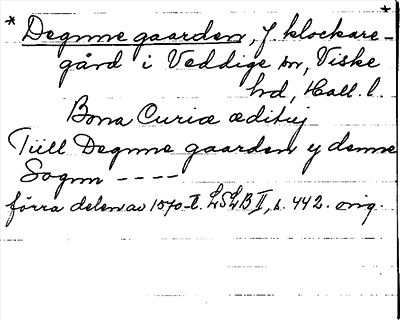 * Degnne gaarden, f. klockare- *
gård i Veddige sn, Viske
hd, Hall. l.
Bona Curiæ ædituj
Tiill Degnne gaarden y denne
Sognn - - - -
förra delen av 1570-t. LSLB II, s. 442. orig.